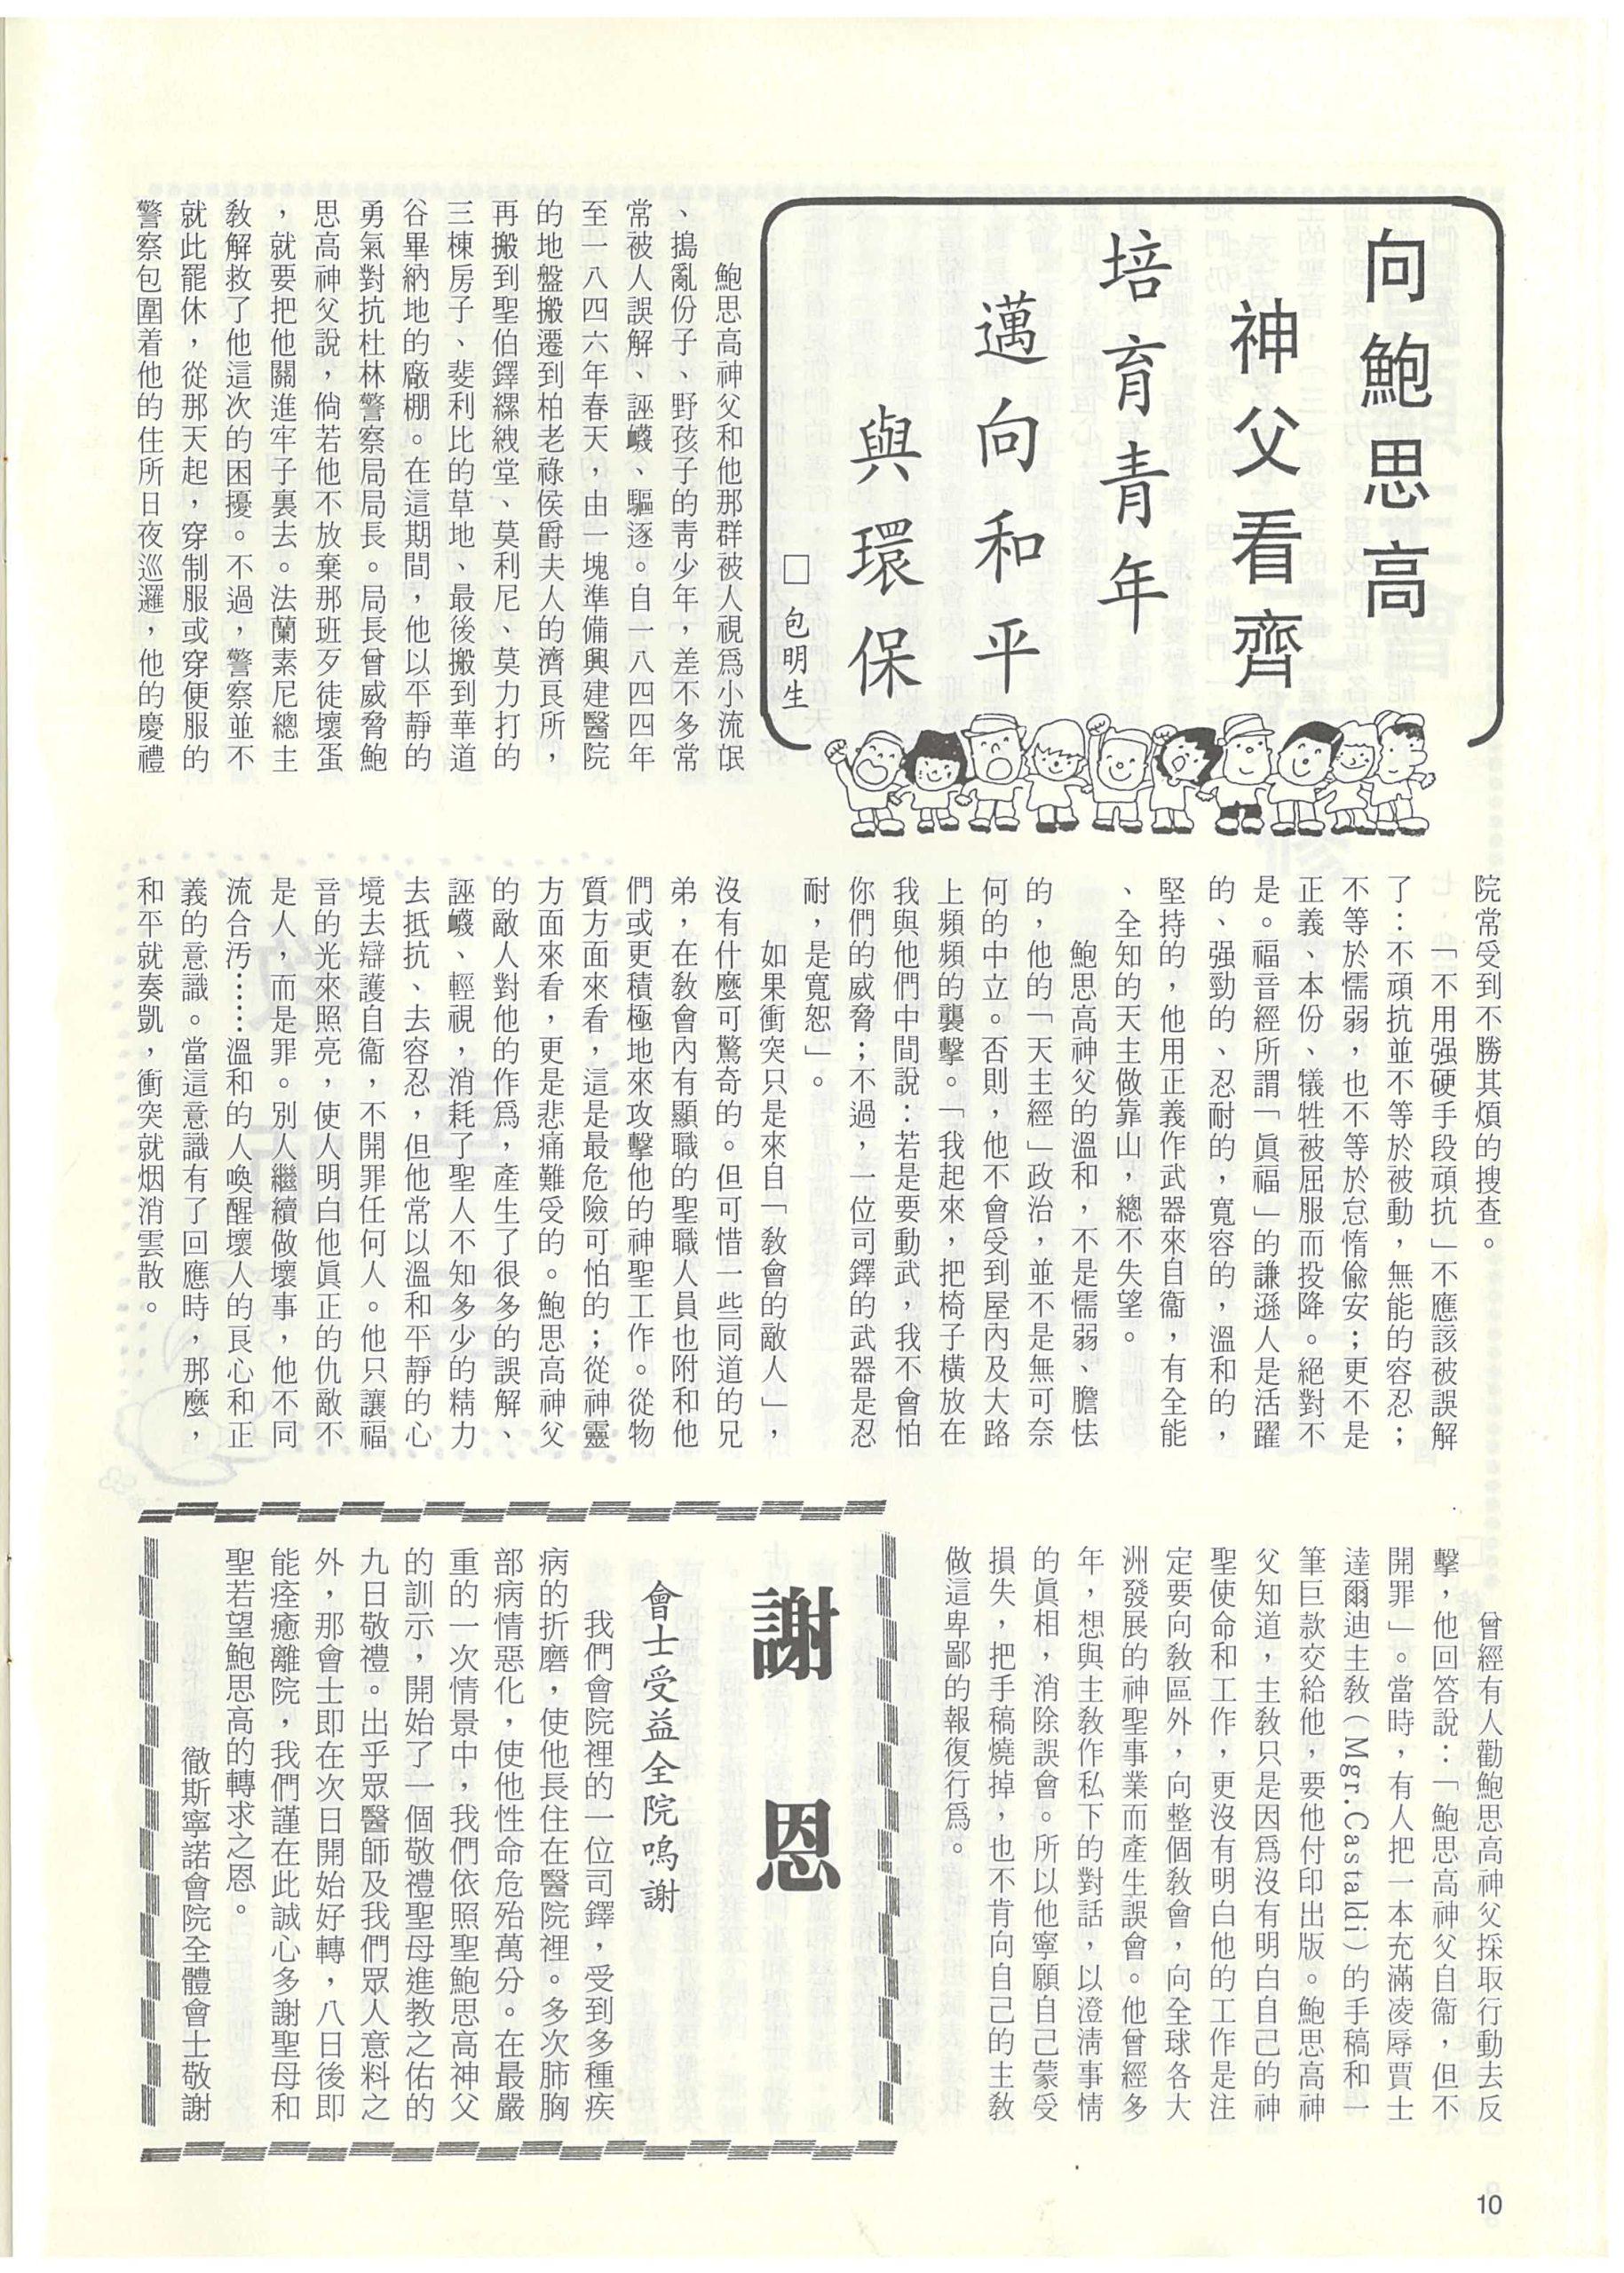 向鮑思高
神父看齊
培育青年
邁向和平
與環保
□ 包明生
鮑思高神父和他那群被人視爲小流氓
、搗亂份子、野孩子的青少年，差不多常
常被人誤解、誣衊、驅逐。自一八四四年
至一八四六年春天，由一塊準備興建醫院
的地盤搬遷到柏老祿侯爵夫人的濟良所，
再搬到聖伯鐸縲絏堂、莫利尼、莫力打的
三棟房子、斐利比的草地、最後搬到華道
谷畢納地的廠棚。在這期間，他以平靜的
勇氣對抗杜林警察局局長。局長曾威脅鮑
思高神父說，倘若他不放棄那班歹徒壞蛋
，就要把他關進牢子裏去。法蘭素尼總主
教解救了他這次的困擾。不過，警察並不
就此罷休，從那天起，穿制服或穿便服的
警察包圍着他的住所日夜巡邏，他的慶禮
院常受到不勝其煩的搜查。
「不用强硬手段頑抗」不應該被誤解
了：不頑抗並不等於被動，無能的容忍；
不等於懦弱，也不等於怠惰偸安；更不是
正義、本份、犠牲被屈服而投降。絕對不
是。福音經所謂「眞福」的謙遜人是活躍
的、强勁的、忍耐的，寬容的，溫和的，
堅持的，他用正義作武器來自衞，有全能
、全知的天主做靠山，總不失望。
鮑思高神父的溫和，不是懦弱、膽怯
的，他的「天主經」政治，並不是無可奈
何的中立。否則，他不會受到屋內及大路
上頻頻的襲擊。「我起來，把椅子橫放在
我與他們中間說：若是要動武，我不會怕
你們的威脅；不過，一位司鐸的武器是忍
耐，是寬恕」。
如果衝突只是來自「教會的敵人」，
沒有什麼可驚奇的。但可惜一些同道的兄
弟，在教會內有顯職的聖職人員也附和他
們或更積極地來攻擊他的神聖工作。從物
質方面來看，這是最危險可怕的；從神靈
方面來看，更是悲痛難受的。鮑思高神父
的敵人對他的作爲，產生了很多的誤解、
誣衊、輕視，消耗了聖人不知多少的精力
去抵抗、去容忍，但他常以溫和平靜的心
境去辯護自衞，不開罪任何人。他只讓福
音的光來照亮，使人明白他眞正的仇敵不
是人，而是罪。別人繼續做壞事，他不同
流合污……溫和的人喚醒壞人的良心和正
義的意識。當這意識有了回應時，那麼，
和平就奏凱，衝突就烟消雲散。
曾經有人勸鮑思高神父採取行動去反
擊，他回答說：「鮑思高神父自衞，但不
開罪」。當時，有人把一本充滿凌辱賈士
達爾迪主教（Mgr.Castaldi）的手稿和一
筆巨款交給他，要他付印出版。鮑思高神
父知道，主教只是因爲沒有明白自己的神
聖使命和工作，更沒有明白他的工作是注
定要向教區外，向整個教會，向全球各大
洲發展的神聖事業而產生誤會。他曾經多
年，想與主教作私下的對話，以澄清事情
的眞相，消除誤會。所以他寧願自己蒙受
損失，把手稿燒掉，也不肯向自己的主教
做這卑鄙的報復行爲。
謝恩
會士受益全院鳴謝
我們會院裡的一位司鐸，受到多種疾
病的折磨，使他長住在醫院裡。多次肺胸
部病情惡化，使他性命危殆萬分。在最嚴
重的一次情景中，我們依照聖鮑思高神父
的訓示，開始了一個敬禮聖母進教之佑的
九日敬禮。出乎眾醫師及我們眾人意料之
外，那會士即在次日開始好轉，八日後即
能痊癒離院，我們謹在此誠心多謝聖母和
聖若望鮑思高的轉求之恩。
徹斯寧諾會院全體會士敬謝
10